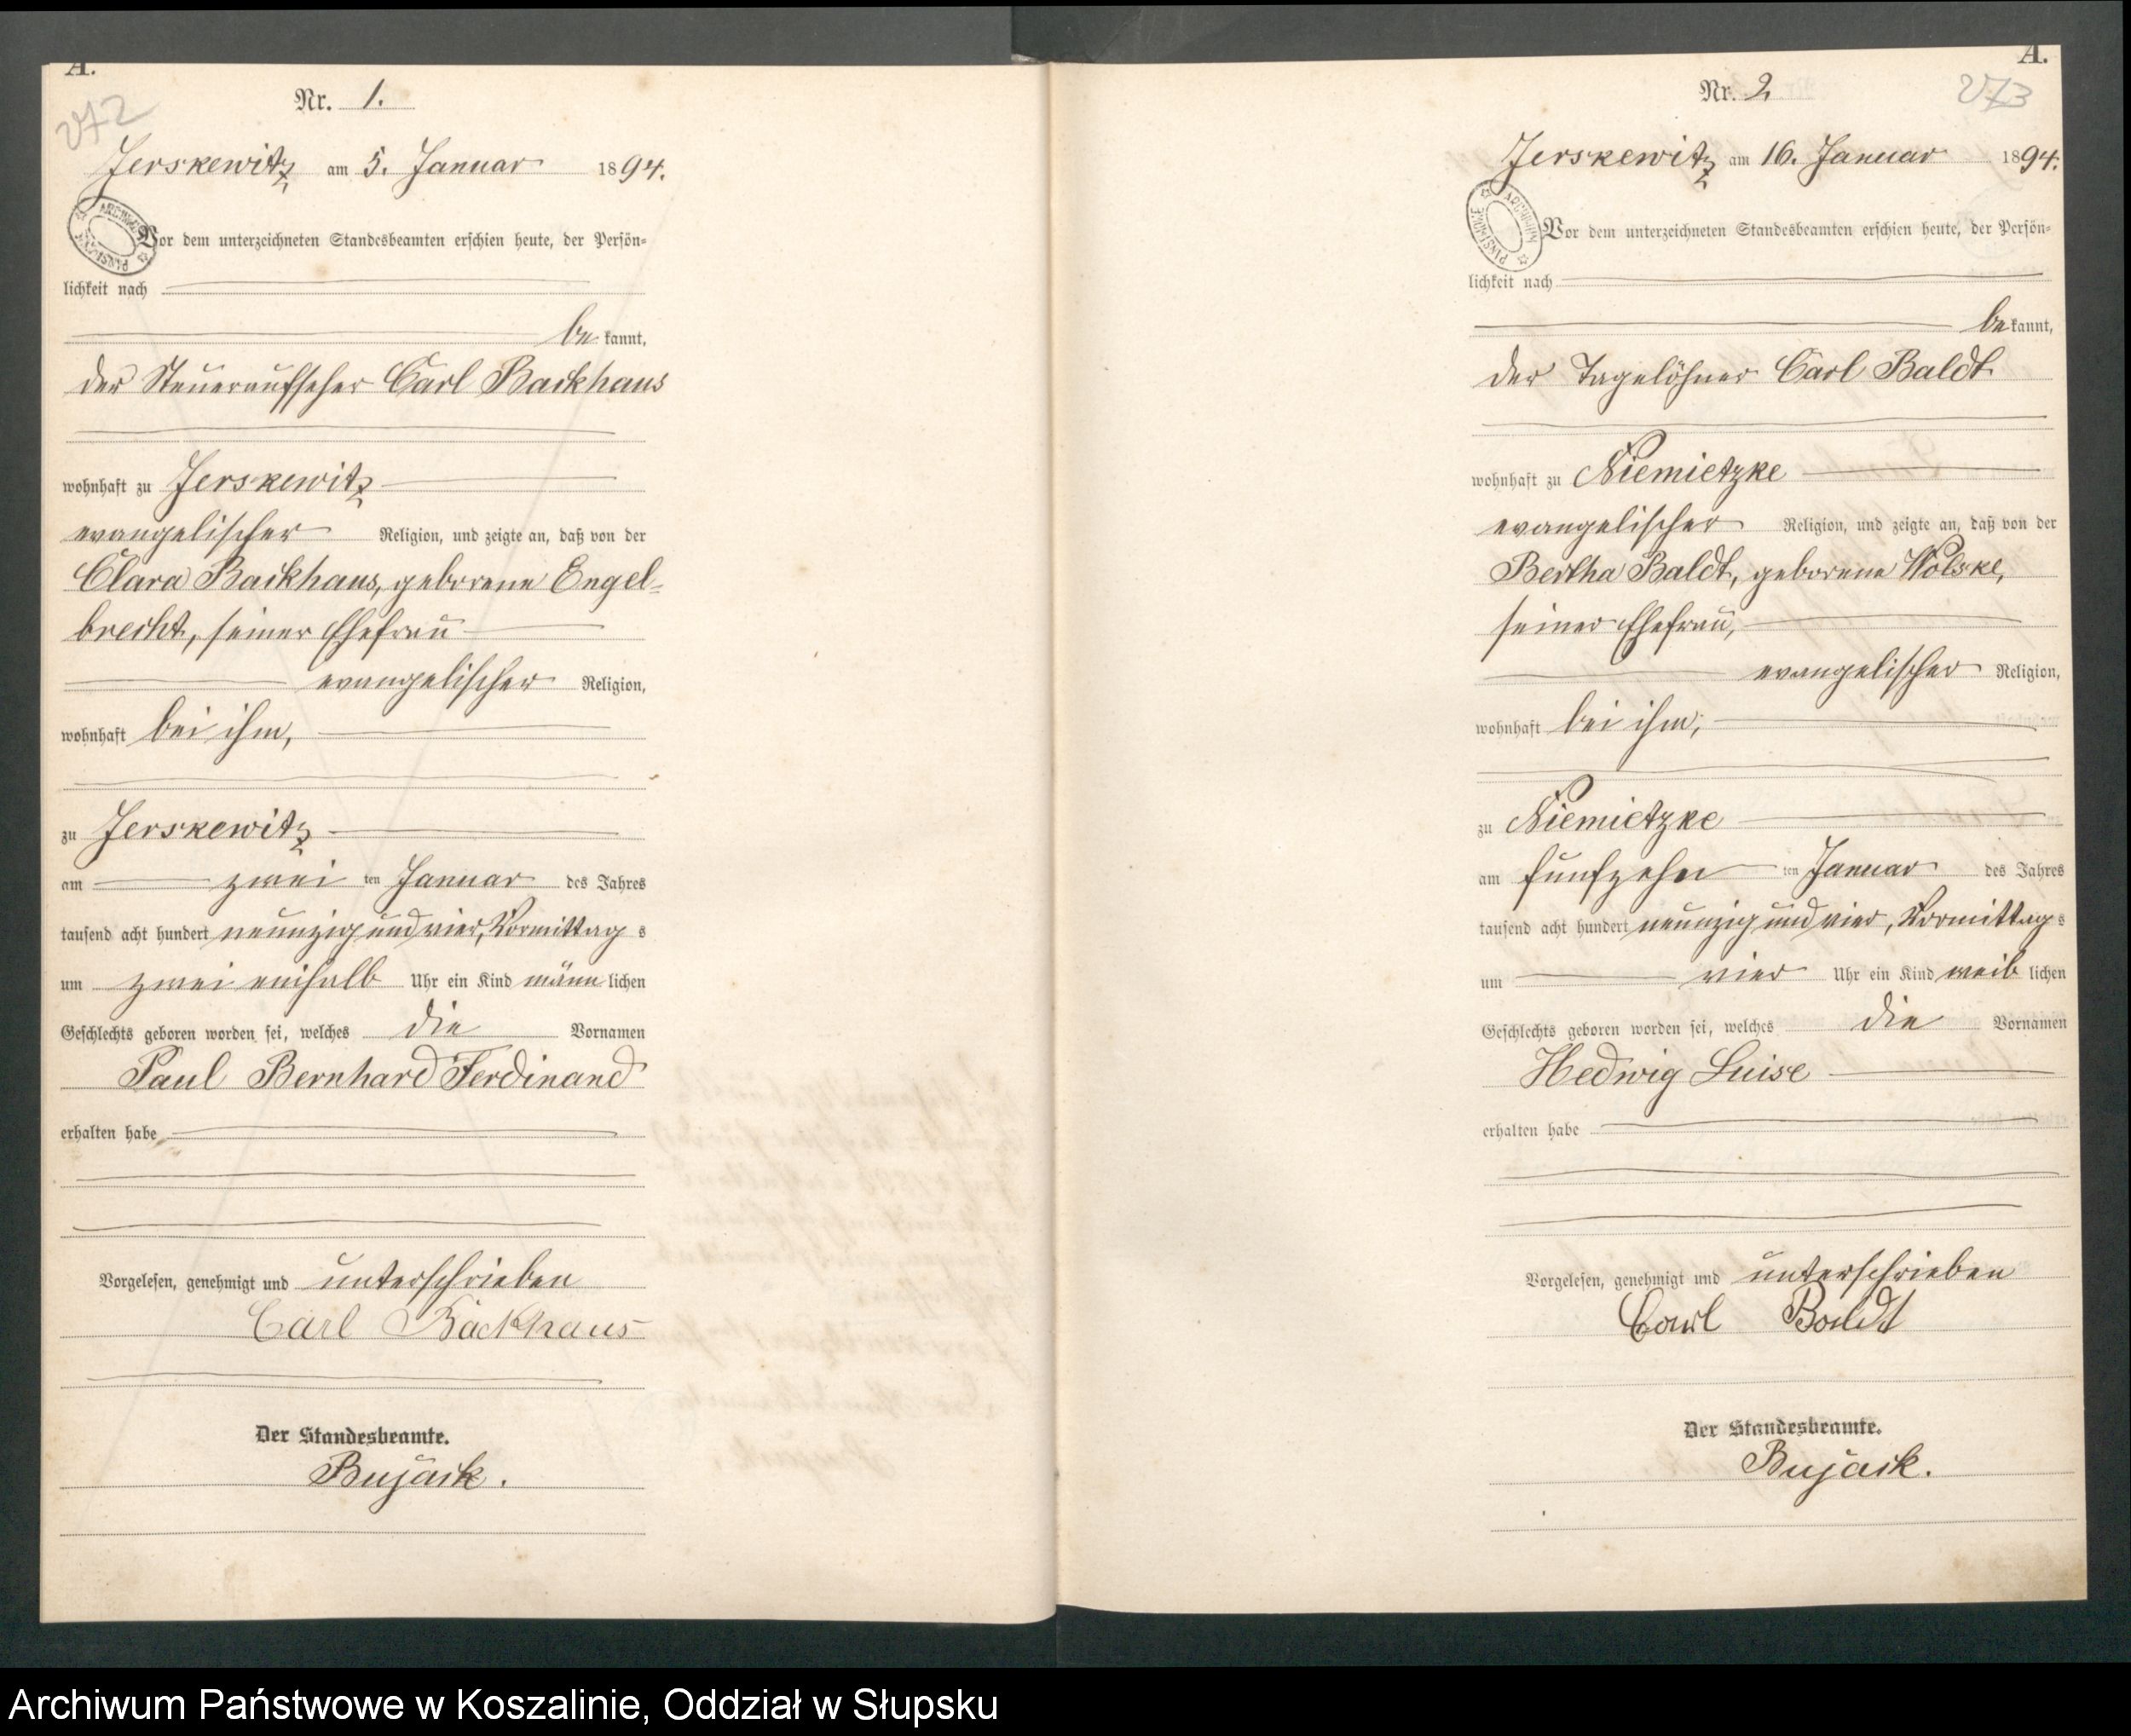 A.
272
Nr. 1.
Jerskewitz am 5. Januar 1894.
Vor dem unterzeichneten Standesbeamten erschien heute, der Persön-
lichkeit nach
be kannt,
der Steueraufseher Carl Backhaus
wohnhaft zu Jerskewitz
evangelischer Religion, und zeigte an, daß von der
Clara Backhaus, geborene Engel-
brecht, seiner Ehefrau
evangelischer Religion,
wohnhaft bei ihm,
zu Jerskewitz
am zwei ten Januar des Jahres
tausend acht hundert neunzig und vier, Vormittag s
um zwei einhalb Uhr ein Kind männ lichen
Geschlechts geboren worden sei, welches die Vornamen
Paul Bernhard Ferdinand
erhalten habe
Vorgelesen, genehmigt und unterschrieben
Carl Backhaus
Der Standesbeamte.
Bujack.
A.
273
Nr. 2
Jerskewitz am 16. Januar 1894.
Vor dem unterzeichneten Standesbeamten erschien heute, der Persön-
lichkeit nach
be kannt,
der Tagelöhner Carl Baldt
wohnhaft zu Niemietzke
evangelischer Religion, und zeigte an, daß von der
Bertha Baldt, geborene Wolske,
seiner Ehefrau,
evangelischer Religion,
wohnhaft bei ihm,
zu Niemietzke
am fünfzehn ten Januar des Jahres
tausend acht hundert neunzig und vier, Vormittag s
um vier Uhr ein Kind weib lichen
Geschlechts geboren worden sei, welches die Vornamen
Hedwig Luise
erhalten habe
Vorgelesen, genehmigt und unterschrieben
Carl Baldt
Der Standesbeamte.
Bujack.
Archiwum Państwowe w Koszalinie, Oddział w Słupsku